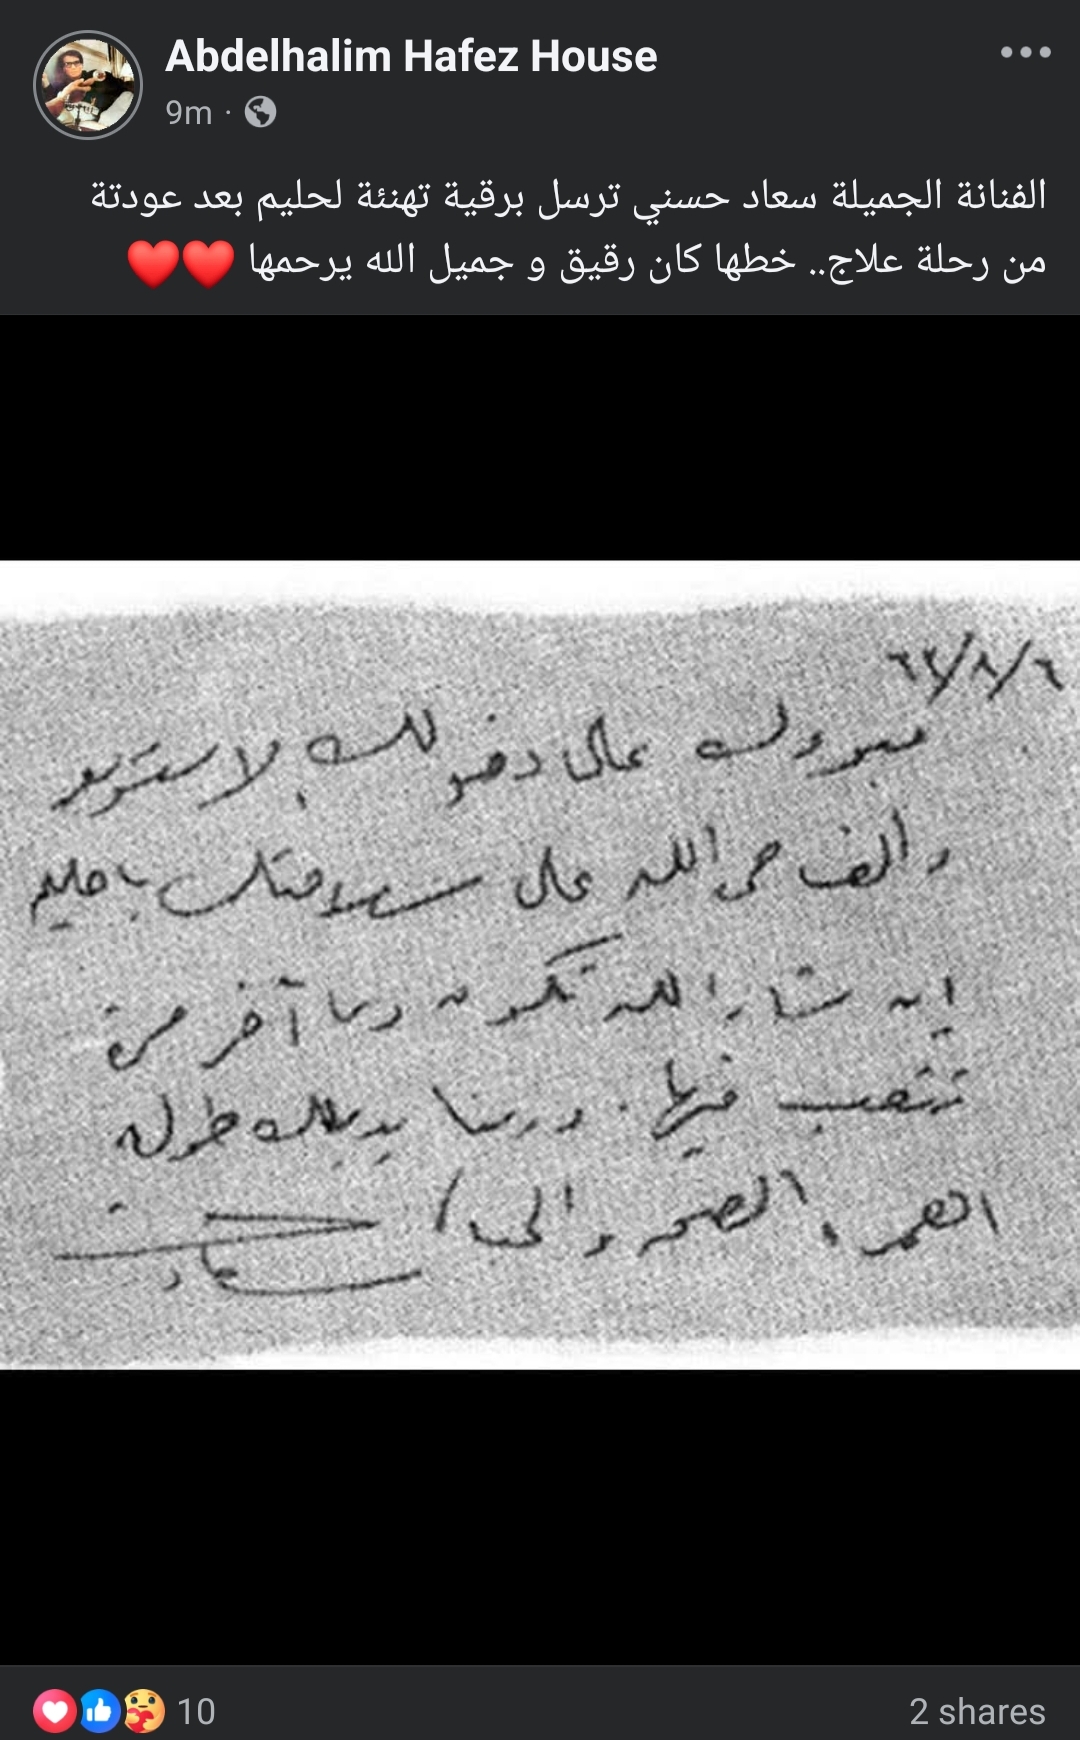 Abdelhalim Hafez House
9m ·
الفنانة الجميلة سعاد حسني ترسل برقية تهنئة لحليم بعد عودتة
من رحلة علاج.. خطها كان رقيق و جميل الله يرحمها ❤️❤️
مبروك على دخولك الاستوديو
والف حمدالله على سلامتك يا حليم
ان شاء الله تكون دى آخر مرة
تتعب فيها. وربنا يديلك طولة
العمر والصحة والحب /
سعاد
10
2 shares